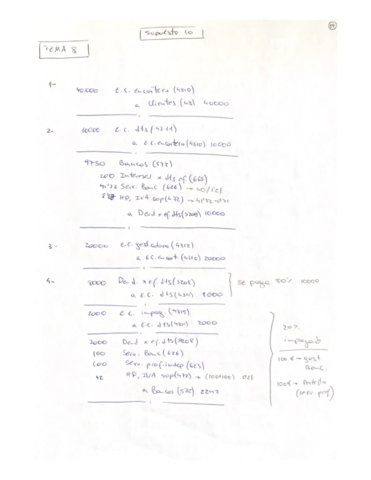 Supuesto 10
TEMA 8
1-
40000 E.C. en cartera (4310)
a Clientes (43) 40000
2-
10000 E.C. dts (4311)
a E.C. en cartera (4310) 10000
9750 Bancos (572)
200 Intereses x dts ef. (665)
Serv. Banc (626)
HP, IVA sop (472)
a Deud x ef dts (5208) 10000
3-
20000 E.C. gest cobro (4312)
a E.C. cart (4310) 20000
4-
8000 Deud. x ef. dts (5208)
a E.C. dts (4311) 8000
se paga 80% 10000
2000 E.C. impag (4315)
a E.C. dts (4311) 2000
2000 Deud x ef. dts (5208)
100 Serv. Banc (626)
100 Serv. prof. indep (623)
42 HP, IVA sop (472) → (100+100) · 0'21
a Bancos (572) 2242
20%
impagado
100€ → gast
Banc.
100€ → protesto
(serv prof)